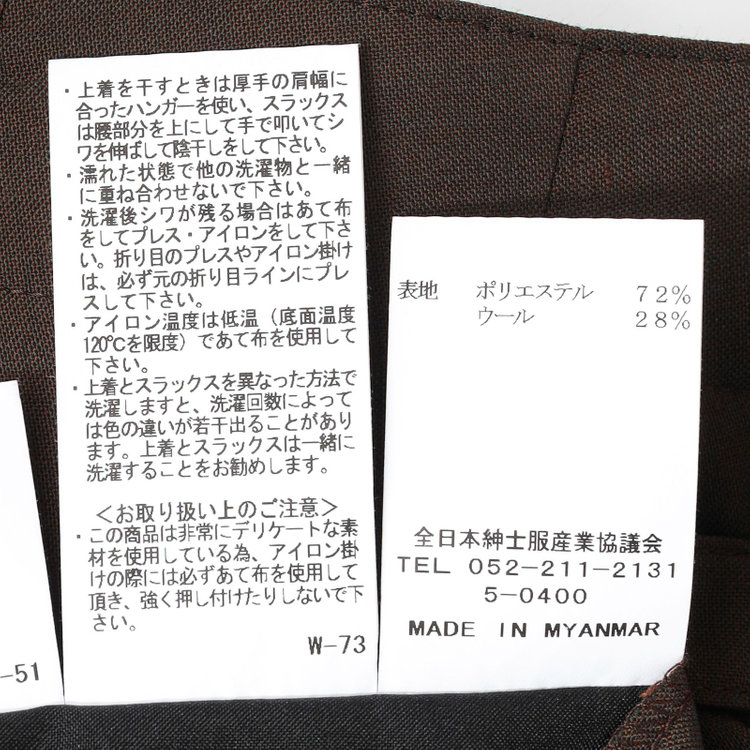 ・上着を干すときは厚手の肩幅に
合ったハンガーを使い、スラックス
は腰部分を上にして手で叩いてシ
ワを伸ばして陰干しをして下さい。
・濡れた状態で他の洗濯物と一緒
に重ね合わせないで下さい。
・洗濯後シワが残る場合はあて布
をしてプレス・アイロンをして下さ
い。折り目のプレスやアイロン掛け
は、必ず元の折り目ラインにプレ
スして下さい。
・アイロン温度は低温（底面温度
120℃を限度）であて布を使用して
下さい。
・上着とスラックスを異なった方法で
洗濯しますと、洗濯回数によって
は色の違いが若干出ることがあり
ます。上着とスラックスは一緒に
洗濯することをお勧めします。
＜お取り扱い上のご注意＞
・この商品は非常にデリケートな素
材を使用している為、アイロン掛
けの際には必ずあて布を使用して
頂き、強く押し付けたりしないで下
さい。
W-73
表地 ポリエステル 72%
ウール 28%
全日本紳士服産業協議会
TEL 052-211-2131
5-0400
MADE IN MYANMAR
-51